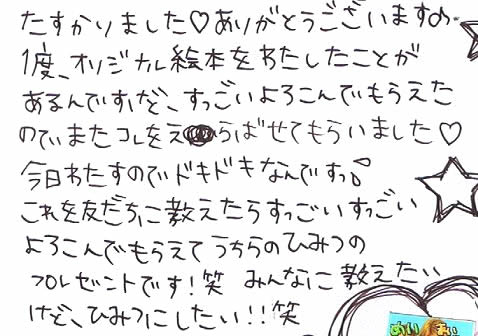 たすかりました♡ありがとうございます♪
1度、オリジナル絵本をわたしたことが
あるんですけど、すっごいよろこんでもらえた
のでまたコレをえらばせてもらいました♡
今日わたすのでドキドキなんですっ。
これを友だちに教えたらすっごいすっごい
よろこんでもらえてうちらのひみつの
プレゼントです!笑 みんなに教えたい
けど、ひみつにしたい!!笑